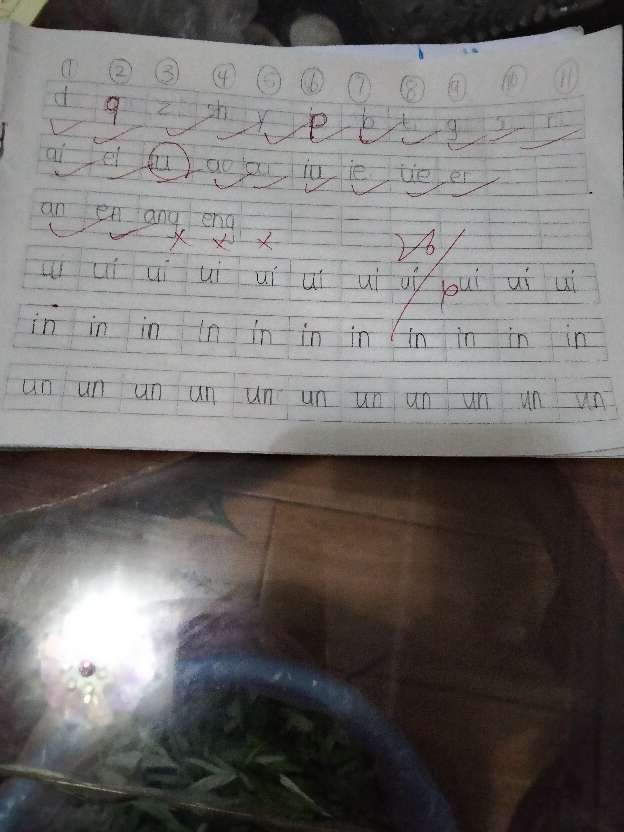 ① ② ③ ④ ⑤ ⑥ ⑦ ⑧ ⑨ ⑩ ⑪
d q z sh y p b t g s n
ai ei ui ao ou iu ie üe er
an en ang eng
26
ui ui ui ui ui ui ui ui pui ui ui
in in in in in in in in in in in
un un un un un un un un un un un